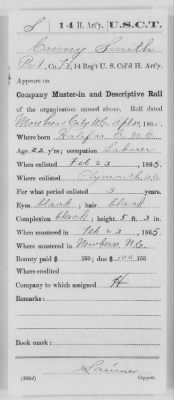 S | 14 H. Art'y. | U.S.C.T.
Smith
Pvt, Co. H, 14 Reg't U. S. Col'd H. Art'y.
Appears on
Company Muster-in and Descriptive Roll
of the organization named above. Roll dated
Morehead City N.C. Sept 20, 186
Where born Halifax C. N.C.
Age 22 y'rs; occupation Laborer
When enlisted Feb 23, 1865
Where enlisted Plymouth N.C.
For what period enlisted 3 years
Eyes black; hair black
Complexion black; height 5 ft. 3 in.
When mustered in Feb 23, 1865
Where mustered in Newbern, N.C.
Bounty paid $ 100; due $ 100
Where credited
Company to which assigned H
Remarks:
Book mark:
Copyist.